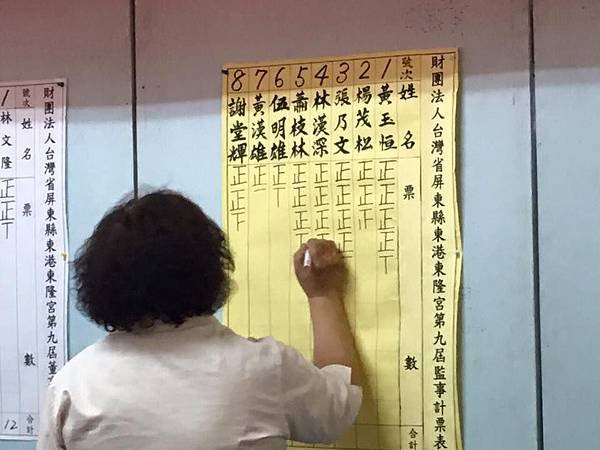 財團法人台灣省屏東縣東港東隆宮第九屆監事計票表
號次 姓名 票數 合計
1 黃玉恒 正正正正丅
2 楊茂松 正正丅
3 張乃文
4 林漢深
5 蕭枝林
6 伍明雄 正丅
7 黃漢雄 正一
8 謝堂輝 正正丅
財團法人台灣省屏東縣東港東隆宮第九屆董
號次 姓名 票數 合計
1 林文隆 正正丅 12